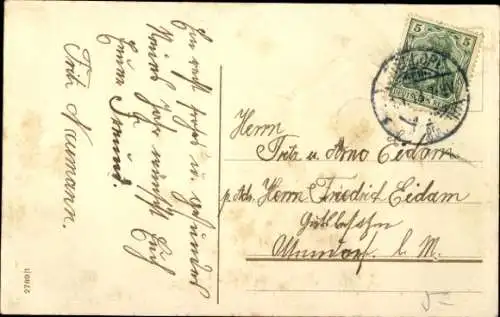 Ein recht frohes u. gesundes
Neues Jahr wünscht Euch
Euer Freund
Fritz Neumann.
5 5
DEUTSCHES REICH
Herrn
Fritz u. Arno Eidam
p. Adr. Herrn Friedrich Eidam
Gutsbesitzer
b. M.